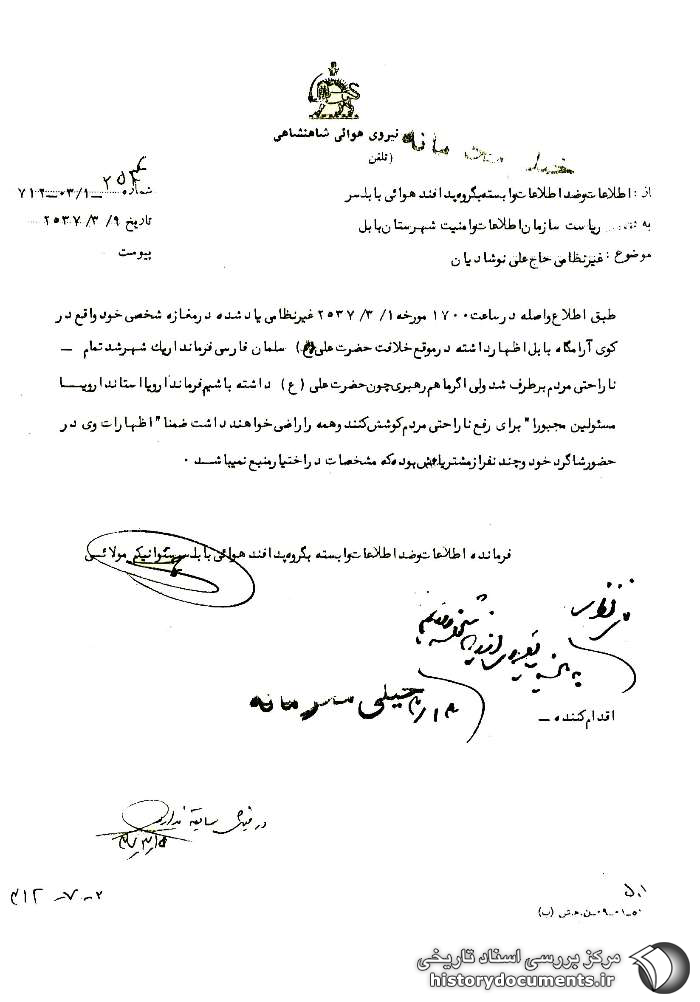 نیروی هوائی شاهنشاهی
خیلی محرمانه
(تلفن
از : اطلاعات وضد اطلاعات وابسته بگروه پدافند هوائی بابلسر
شماره ۲۵۴-۰۳/۱-۷۱۲
به : ریاست سازمان اطلاعات وامنیت شهرستان بابل
تاریخ ۹/ ۳/ ۲۵۳۷
موضوع : غیرنظامی حاج علی نوشادیان
پیوست
طبق اطلاع واصله درساعت ۱۷۰۰ مورخه ۱/ ۳/ ۲۵۳۷ غیرنظامی یاد شده درمغازه شخصی خود واقع در
کوی آرامگاه بابل اظهارداشته درموقع خلافت حضرت علی (ع) سلمان فارسی فرماندار یک شهر شد تمام _
ناراحتی مردم برطرف شد ولی اگرما هم رهبری چون حضرت علی (ع) داشته باشیم فرماندار ویا استاندار ویا
مسئولین مجبورا" برای رفع ناراحتی مردم کوشش کنند وهمه را راضی خواهند داشت ضمنا" اظهارات وی در
حضورشاگرد خود وچند نفراز مشتریانش بوده که مشخصات در اختیارمنبع نمیباشد ۰
فرمانده اطلاعات وضد اطلاعات وابسته بگروه پدافند هوائی بابلسر ستوانیکم مولائی
خیلی محرمانه
اقدام کننده _
در فیش سابقه ندارد
۳۷/۳/۱۵
۵۰۱
۵۰-۰۱-۰۹-ن.ه.ش (ب)
۲-۷-۳۱۲
مرکز بررسی اسناد تاریخی
historydocuments.ir